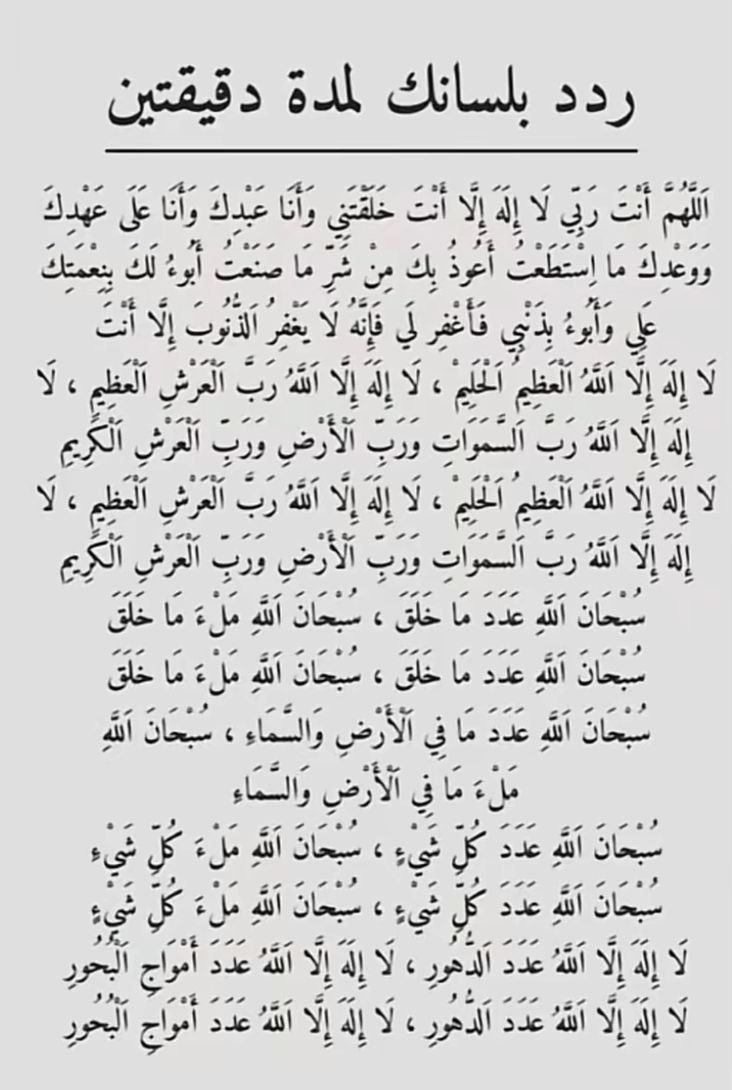 ردد بلسانك لمدة دقيقتين
اَللَّهُمَّ أَنْتَ رَبِّي لَا إِلَهَ إِلَّا أَنْتَ خَلَقْتَنِي وَأَنَا عَبْدِكَ وَأَنَا عَلَى عَهْدِكَ
وَوَعْدِكَ مَا اِسْتَطَعْتُ أَعُوذُ بِكَ مِنْ شَرِّ مَا صَنَعْتُ أَبُوءُ لَكَ بِنِعْمَتِكَ
عَلِي وَأَبُوءُ بِذَنْبِي فَأَغْفِر لَي فَإِنَّهُ لَا يَغْفِرُ اَلذُّنُوبَ إِلَّا أَنْتَ
لَا إِلَهَ إِلَّا اَللَّهُ اَلْعَظِيمُ اَلْحَلِيمْ ، لَا إِلَهَ إِلَّا اَللَّهُ رَبَّ اَلْعَرْشِ اَلْعَظِيمِ ، لَا
إِلَهَ إِلَّا اَللَّهُ رَبَّ اَلسَّمَوَاتِ وَرَبِّ اَلْأَرْضِ وَرَبِّ اَلْعَرْشِ اَلْكَرِيمِ
لَا إِلَهَ إِلَّا اَللَّهُ اَلْعَظِيمُ اَلْحَلِيمْ ، لَا إِلَهَ إِلَّا اَللَّهُ رَبَّ اَلْعَرْشِ اَلْعَظِيمِ ، لَا
إِلَهَ إِلَّا اَللَّهُ رَبَّ اَلسَّمَوَاتِ وَرَبِّ اَلْأَرْضِ وَرَبِّ اَلْعَرْشِ اَلْكَرِيمِ
سُبْحَانَ اَللَّهِ عَدَدَ مَا خَلَقَ ، سُبْحَانَ اَللَّهِ مَلْءَ مَا خَلَقَ
سُبْحَانَ اَللَّهِ عَدَدَ مَا خَلَقَ ، سُبْحَانَ اَللَّهِ مَلْءَ مَا خَلَقَ
سُبْحَانَ اَللَّهِ عَدَدَ مَا فِي اَلْأَرْضِ وَالسَّمَاءِ ، سُبْحَانَ اَللَّهِ
مَلْءَ مَا فِي اَلْأَرْضِ وَالسَّمَاءِ
سُبْحَانَ اَللَّهِ عَدَدَ كُلِّ شَيْءٍ ، سُبْحَانَ اَللَّهِ مَلْءَ كُلِّ شَيْءٍ
سُبْحَانَ اَللَّهِ عَدَدَ كُلِّ شَيْءٍ ، سُبْحَانَ اَللَّهِ مَلْءَ كُلِّ شَيْءٍ
لَا إِلَهَ إِلَّا اَللَّهُ عَدَدَ اَلدُّهُورِ ، لَا إِلَهَ إِلَّا اَللَّهُ عَدَدَ أَمْوَاجِ اَلْبُحُورِ
لَا إِلَهَ إِلَّا اَللَّهُ عَدَدَ اَلدُّهُورِ ، لَا إِلَهَ إِلَّا اَللَّهُ عَدَدَ أَمْوَاجِ اَلْبُحُورِ